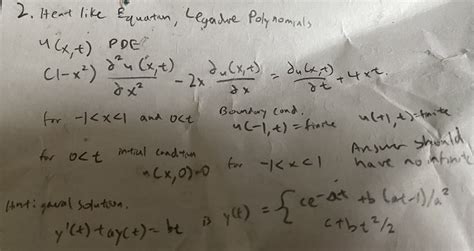 2. Heat like Equation, Legendre Polynomials
u(x,t) PDE
(1-x²) ∂²u(x,t)/∂x² - 2x ∂u(x,t)/∂x = ∂u(x,t)/∂t + 4xt.
for -1<x<1 and 0<t Boundary cond. u(-1,t)=finite u(+1,t)=finite
for 0<t initial condition u(x,0)=0 for -1<x<1 Answer should have no infinite
solution.
y'(t)+ay(t)=bt is y(t) = { ce^-at + b(at-1)/a²
c+bt²/2